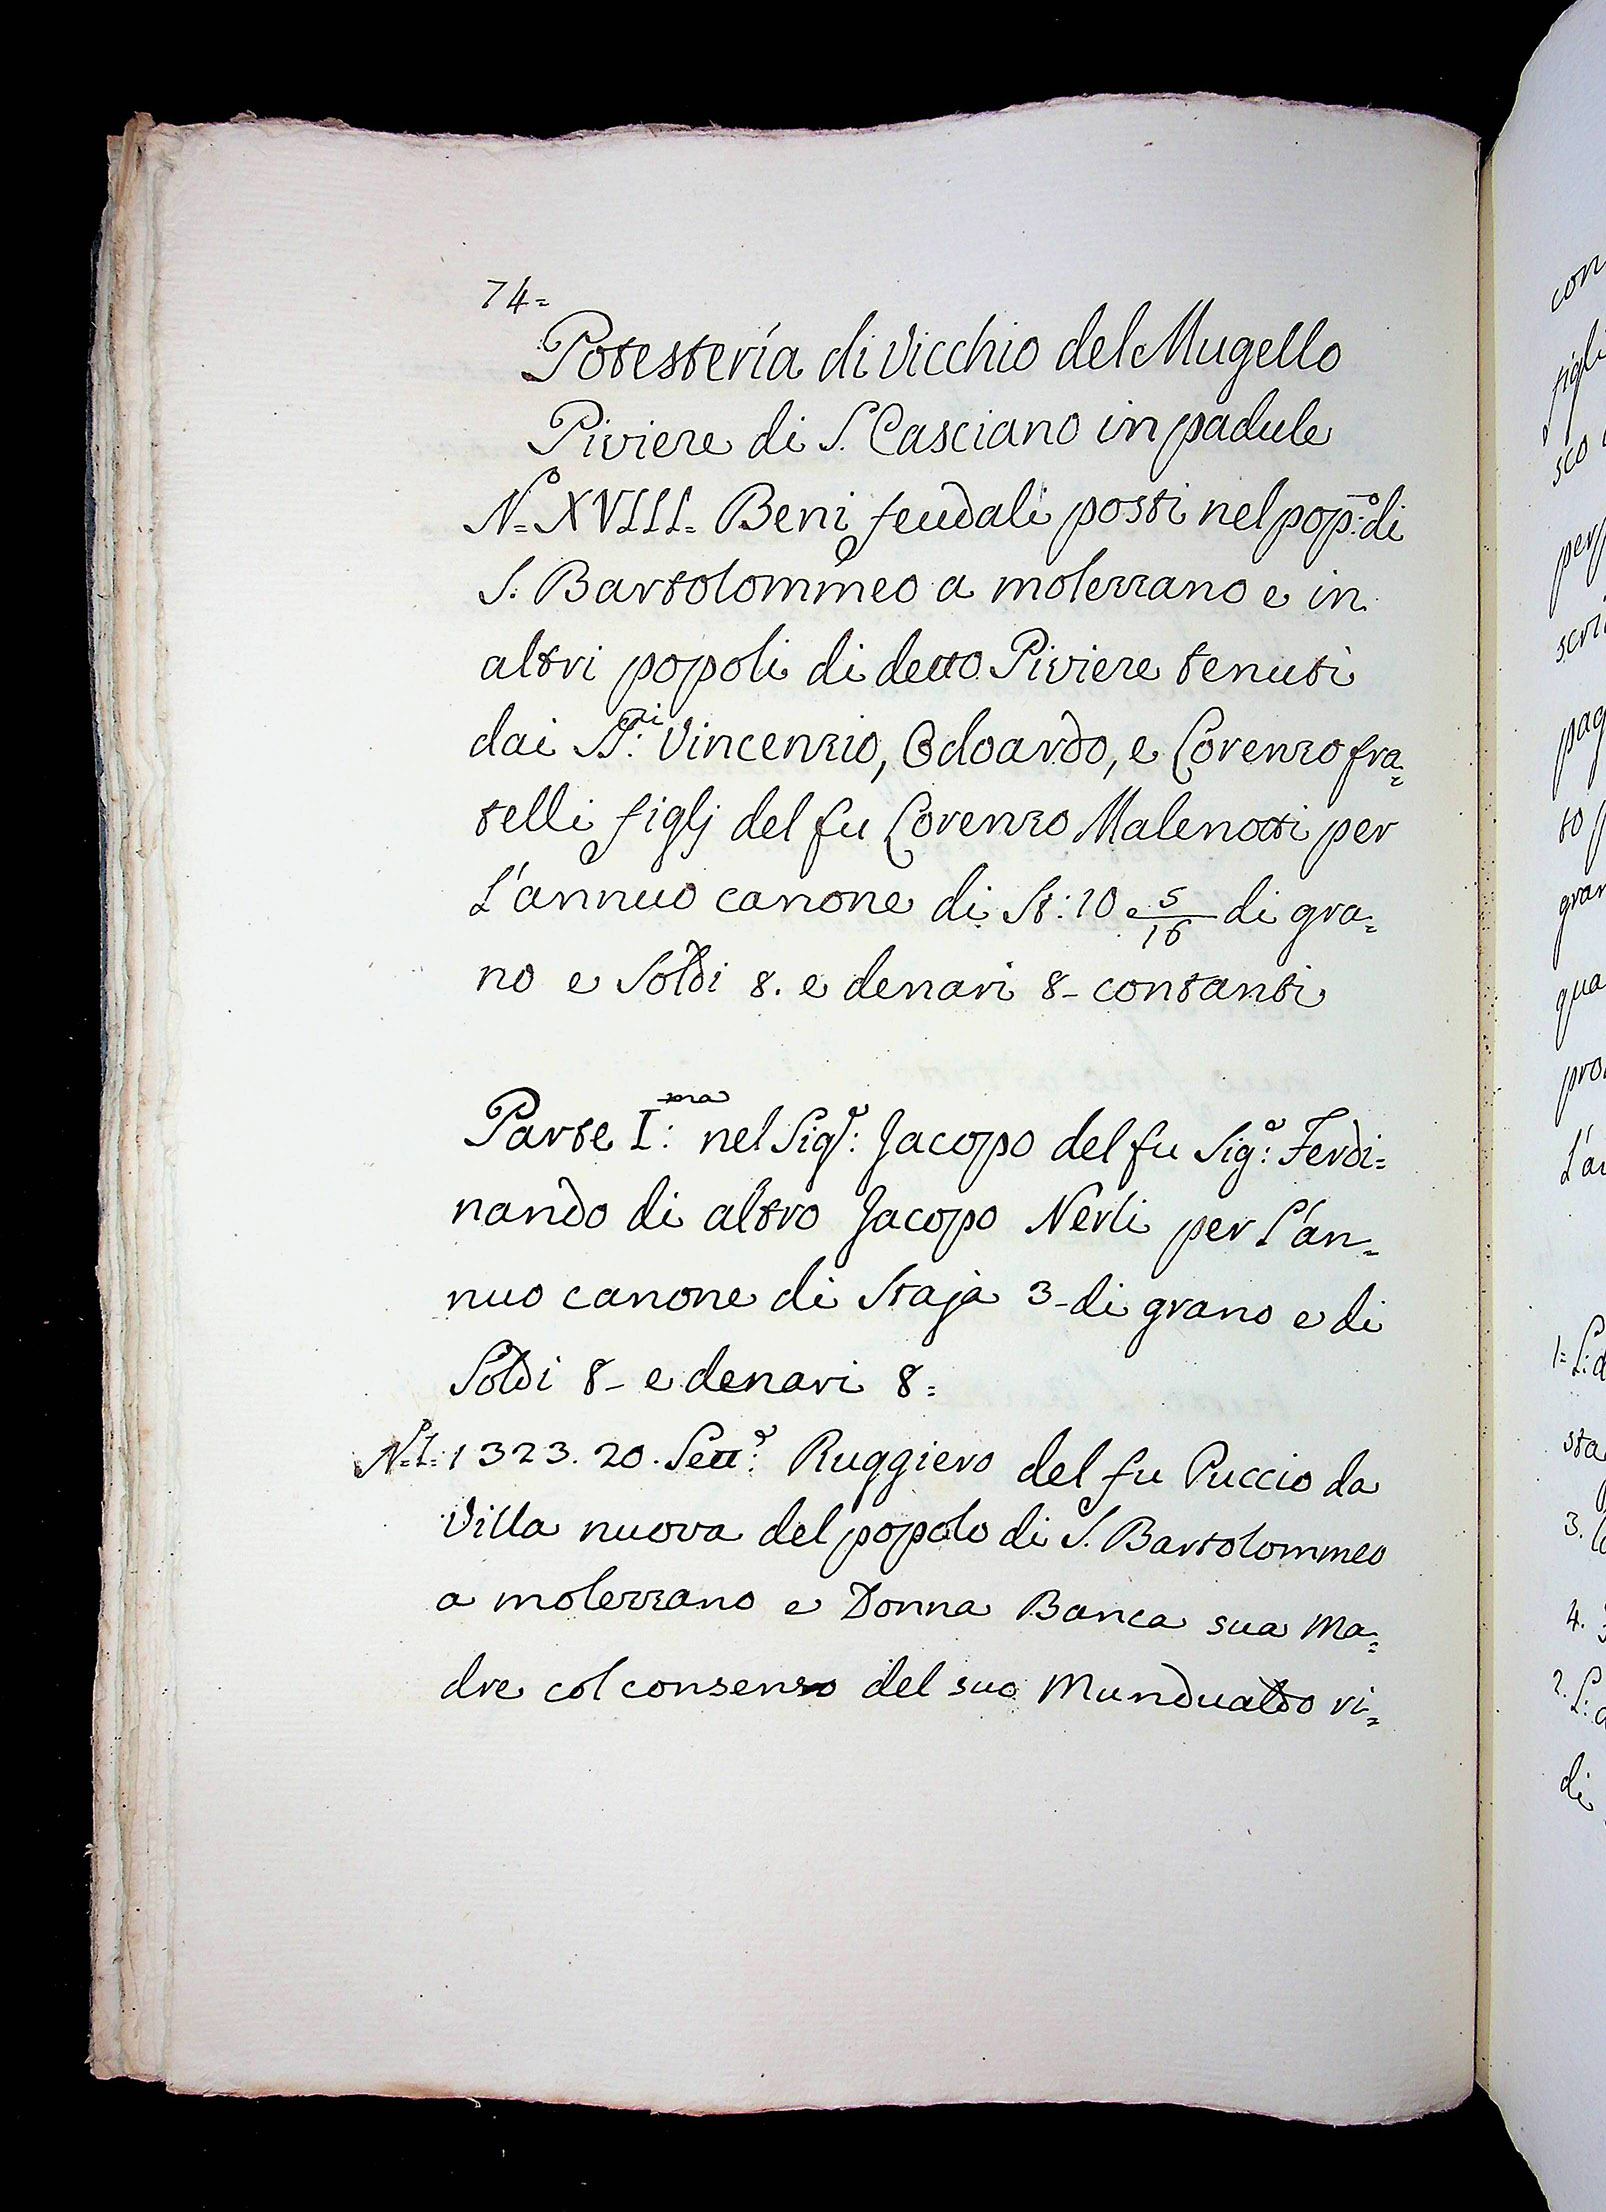 74=
Potestería di Vicchio del Mugello
Piviere di S. Casciano in padule
N.º XVIII. Beni feudali posti nel pop.º di
S. Bartolommeo a molezzano e in
altri popoli di detto Piviere tenuti
dai SS.ri Vincenzio, Odoardo, e Lorenzo fra=
telli figlj del fu Lorenzo Malenotti per
L'annuo canone di St: 10 e 5/16 di gra=
no e Soldi 8. e denari 8- contanti
Parte I:ma nel Sig.r: Jacopo del fu Sig.r: Ferdi=
nando di altro Jacopo Nerli per L'an=
nuo canone di Staja 3- di grano e di
Soldi 8- e denari 8=
N.º 1: 1323. 20. Sett.e: Ruggiero del fu Puccio da
Villa nuova del popolo di S. Bartolommeo
a molezzano e Donna Banca sua Ma=
dre col consenso del suo Mundualdo ri=
con
figli
sco
per
scri
pag
to p
gran
qua
pro
L'an
1= S: d
sta
3.
4.
2. S:
di